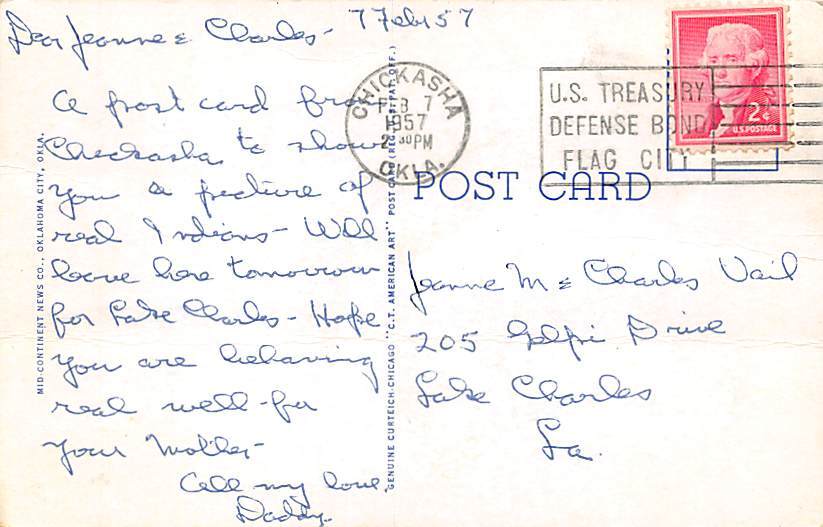 7 Feby 57
Dear Jeanne & Charles-
A post card from
Chickasha to show
you a picture of
real Indians- Will
leave here tomorrow
for Lake Charles- Hope
you are behaving
real well for
your Mother-
All my love,
Daddy-
MID-CONTINENT NEWS CO., OKLAHOMA CITY, OKLA.
GENUINE CURTEICH-CHICAGO "C.T. AMERICAN ART" POST CARD (REG. U.S. PAT. OFF.)
CHICKASHA
FEB 7
1957
2 30 PM
OKLA.
U.S. TREASURY
DEFENSE BOND
FLAG CITY
2¢
U.S. POSTAGE
POST CARD
Jeanne M & Charles Vail
205 Drive
Lake Charles
La.